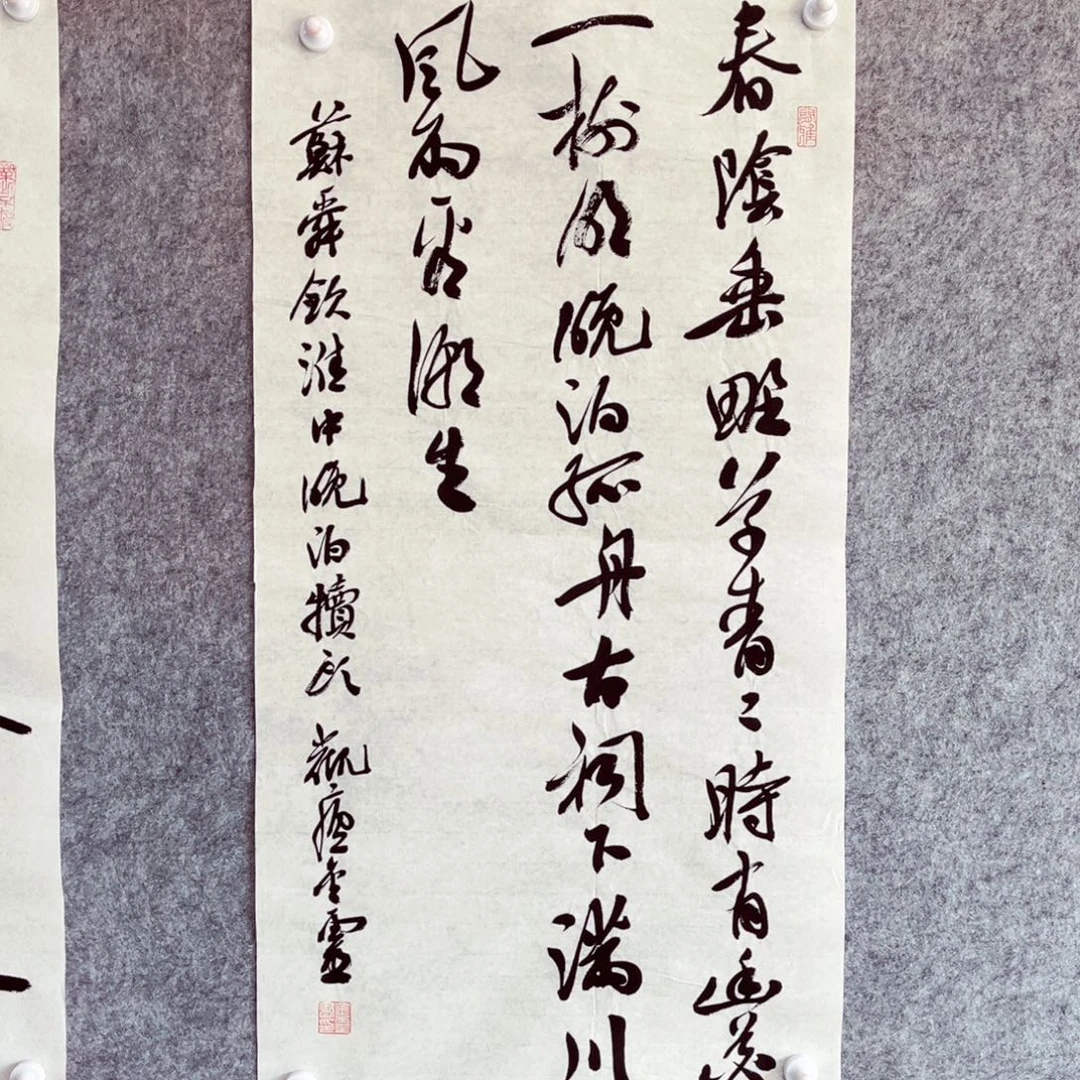 春陰垂野草青〻時有幽花
一樹明晚泊孤舟古祠下滿川
風雨看潮生
蘇舜欽淮中晚泊犢頭